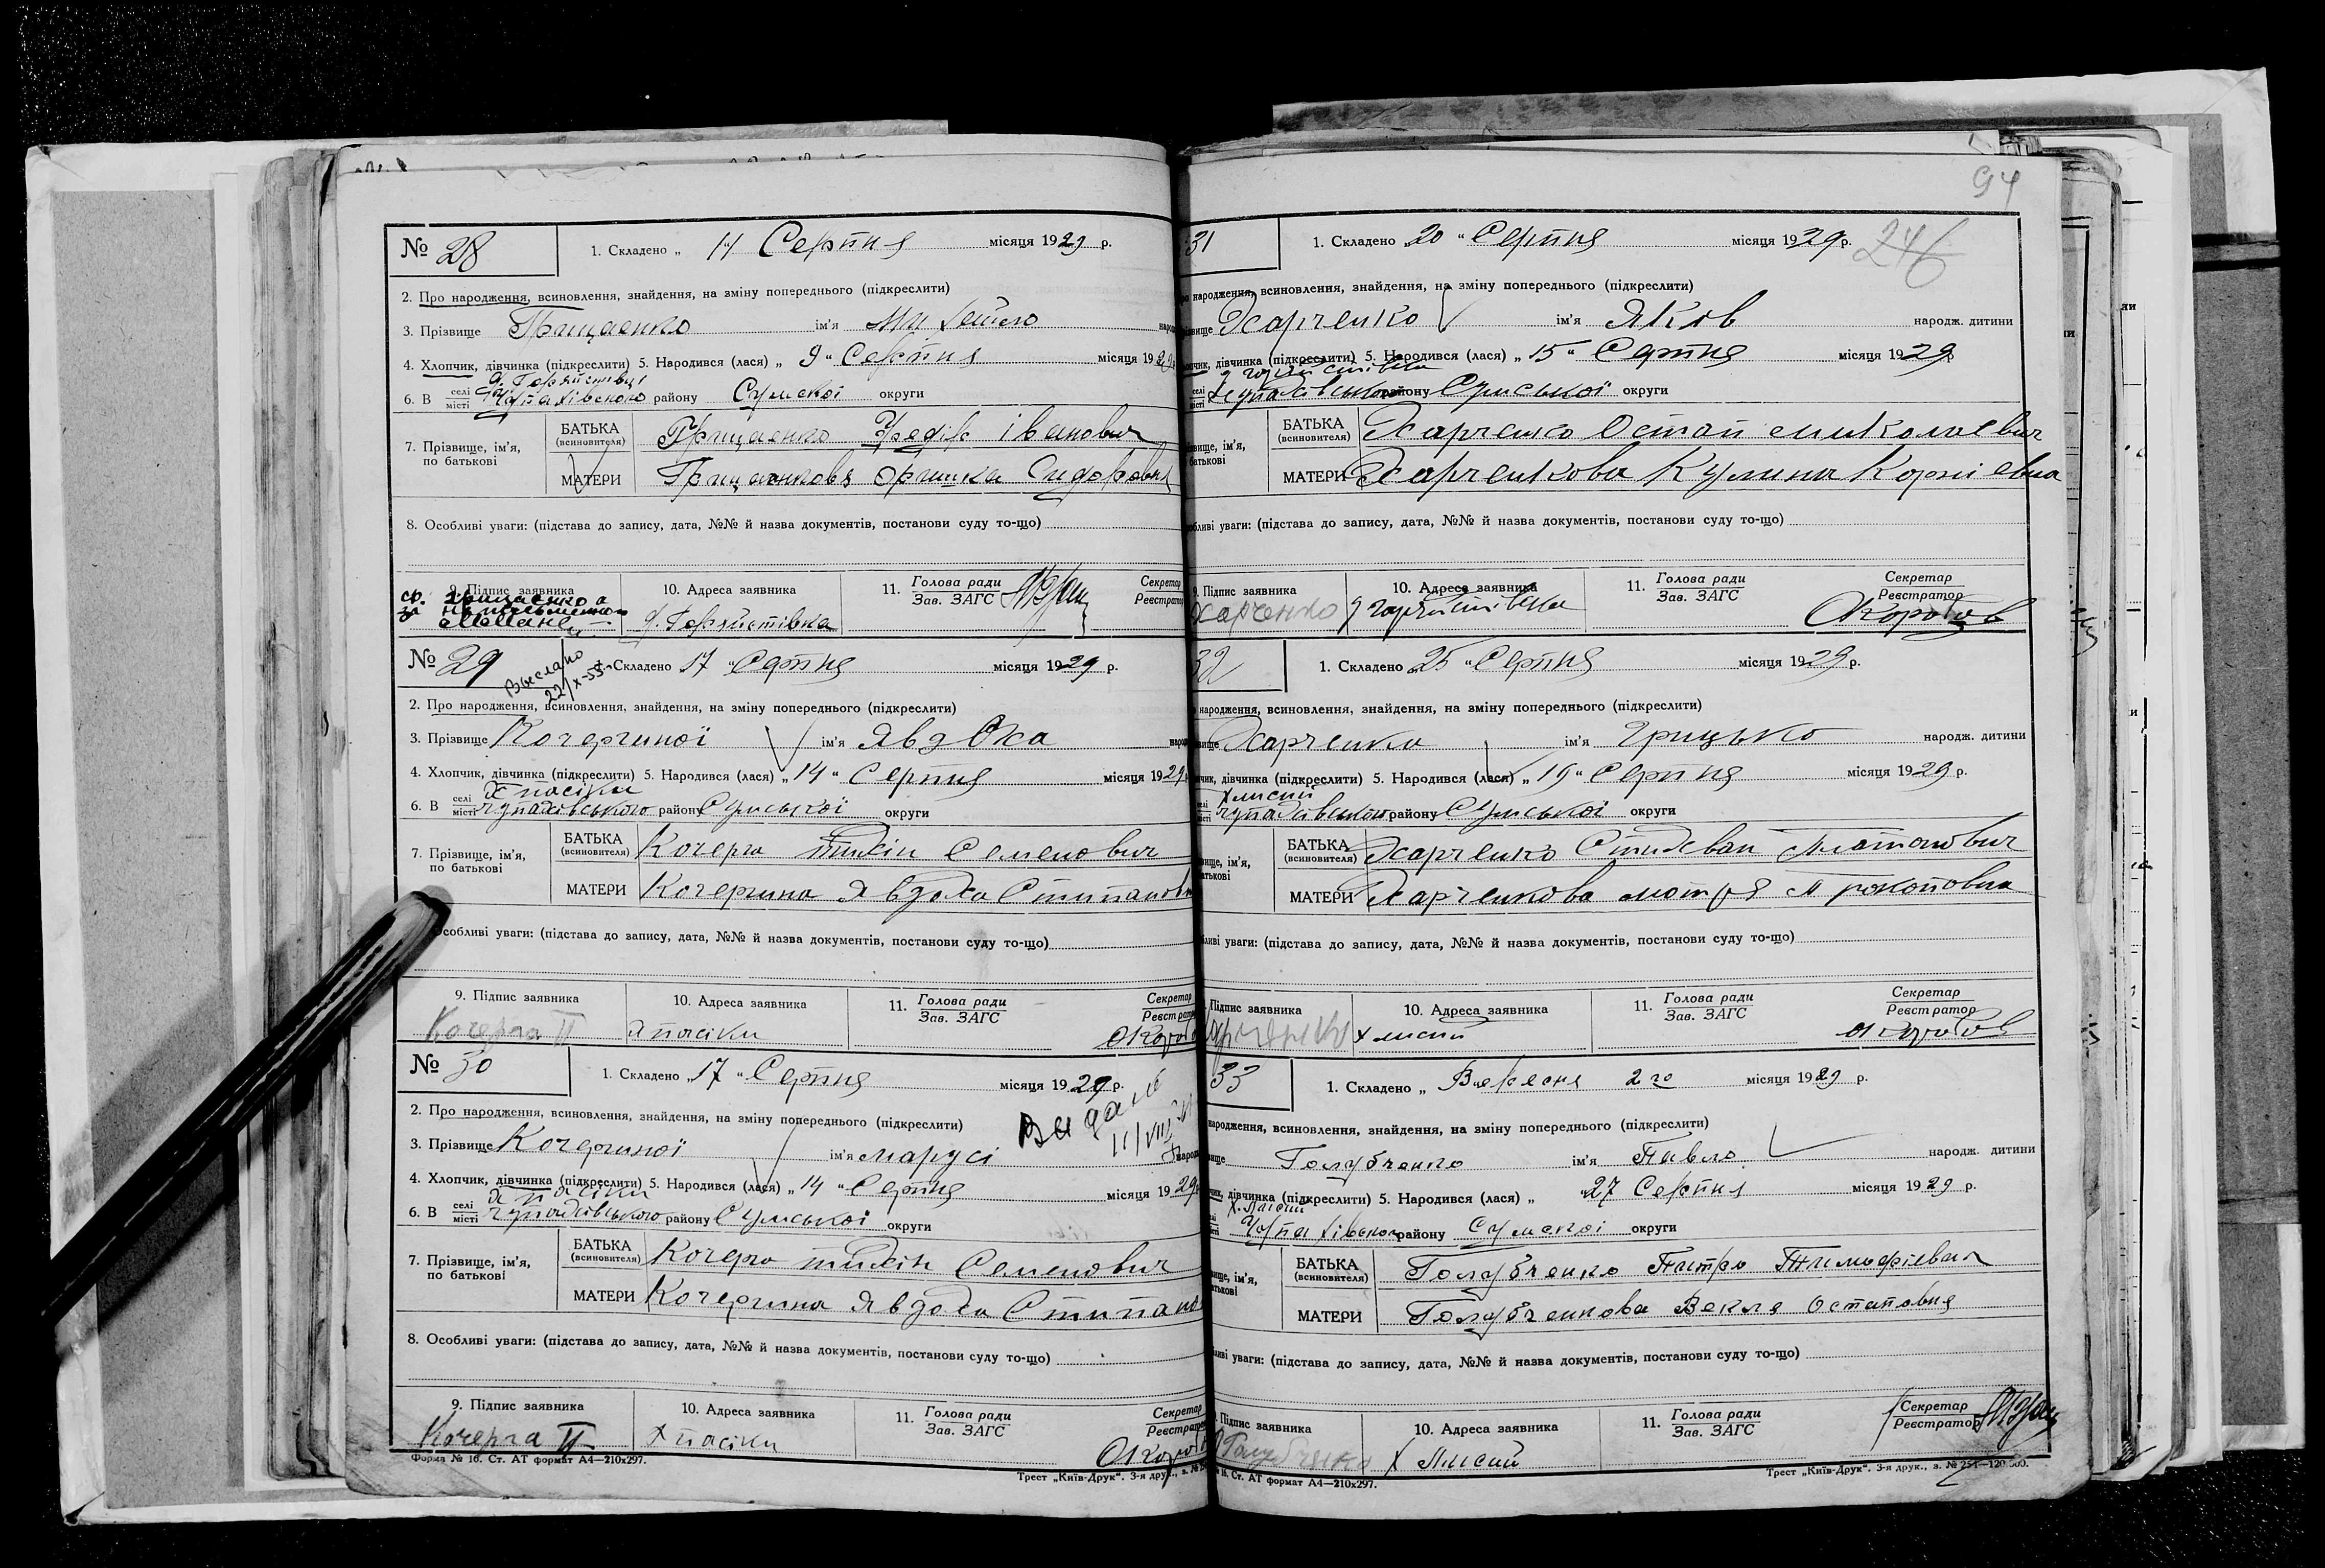 № 28
1. Складено „ 11 Серпня місяця 1929 р.
2. Про народження, всиновлення, знайдення, на зміну попереднього (підкреслити)
3. Прізвище Грищенко ім'я народ
4. Хлопчик, дівчинка (підкреслити) 5. Народився (лася) „ 9 " Серпня місяця 1929
6. В селі місті району Сумскої округи
7. Прізвище, ім'я, по батькові
БАТЬКА (всиновителя) Іванович
МАТЕРИ Оришка Сидоровня
8. Особливі уваги: (підстава до запису, дата, №№ й назва документів, постанови суду то-що)
9. Підпис заявника 10. Адреса заявника 11. Голова ради Зав. ЗАГС Секретар Реєстратор
№ 29
Выслано 22/X-55
1. Складено 17 " Серпня місяця 1929 р.
2. Про народження, всиновлення, знайдення, на зміну попереднього (підкреслити)
3. Прізвище Кочергиної ім'я Явдоха народ
4. Хлопчик, дівчинка (підкреслити) 5. Народився (лася) „ 14 " Серпня місяця 1929
х пасіки
6. В селі місті Чупахівського району Сумської округи
7. Прізвище, ім'я, по батькові
БАТЬКА (всиновителя) Кочерга Семенович
МАТЕРИ Кочергина Явдоха Стипановн
Особливі уваги: (підстава до запису, дата, №№ й назва документів, постанови суду то-що)
9. Підпис заявника 10. Адреса заявника 11. Голова ради Зав. ЗАГС Секретар Реєстратор
Кочерга П х пасіки
№ 30
1. Складено „ 17 " Серпня місяця 1929 р.
2. Про народження, всиновлення, знайдення, на зміну попереднього (підкреслити)
3. Прізвище Кочергиної ім'я Марусі народ
4. Хлопчик, дівчинка (підкреслити) 5. Народився (лася) „ 14 " Серпня місяця 1929
х пасіки
6. В селі місті Чупахівського району Сумської округи
7. Прізвище, ім'я, по батькові
БАТЬКА (всиновителя) Кочерга Семенович
МАТЕРИ Кочергина Явдоха Стипано
8. Особливі уваги: (підстава до запису, дата, №№ й назва документів, постанови суду то-що)
9. Підпис заявника 10. Адреса заявника 11. Голова ради Зав. ЗАГС Секретар Реєстратор
Кочерга П х пасіки
Форма № 16. Ст. АТ формат А4—210х297.
Трест „Київ-Друк". 3-я друк., з. №
94
246
31
1. Складено 20 " Серпня місяця 1929 р.
народження, всиновлення, знайдення, на зміну попереднього (підкреслити)
Харченко ім'я Яков народж. дитини
дівчинка (підкреслити) 5. Народився (лася) „ 15 " Серпня місяця 1929
селі місті району Сумської округи
БАТЬКА (всиновителя) Харченко Остап Миколаевич
МАТЕРИ Харченкова Кулина
уваги: (підстава до запису, дата, №№ й назва документів, постанови суду то-що)
9. Підпис заявника 10. Адреса заявника 11. Голова ради Зав. ЗАГС Секретар Реєстратор
Харченко
32
1. Складено „ 25 " Серпня місяця 1929 р.
народження, всиновлення, знайдення, на зміну попереднього (підкреслити)
Харченко ім'я Грицько народж. дитини
дівчинка (підкреслити) 5. Народився (лася) „ 19 " Серпня місяця 1929 р.
х лисий
Чупахівського району Сумської округи
БАТЬКА (всиновителя) Харченко
МАТЕРИ Харченкова Мотря Прокоповна
уваги: (підстава до запису, дата, №№ й назва документів, постанови суду то-що)
Підпис заявника 10. Адреса заявника 11. Голова ради Зав. ЗАГС Секретар Реєстратор
х лисий
33
1. Складено „ Вересня 2 го місяця 1929 р.
народження, всиновлення, знайдення, на зміну попереднього (підкреслити)
Голубченко ім'я Павло народж. дитини
дівчинка (підкреслити) 5. Народився (лася) „ "27 Серпня місяця 1929 р.
х. Лисий
району Сумскоі округи
БАТЬКА (всиновителя) Голубченко Питро Тимофієвич
МАТЕРИ Голубченкова Векля Остаповня
уваги: (підстава до запису, дата, №№ й назва документів, постанови суду то-що)
Підпис заявника 10. Адреса заявника 11. Голова ради Зав. ЗАГС Секретар Реєстратор
Голубченко х Лисий
16. Ст. АТ формат А4—210х297.
Трест „Київ-Друк". 3-я друк., з. № 251—120.000.